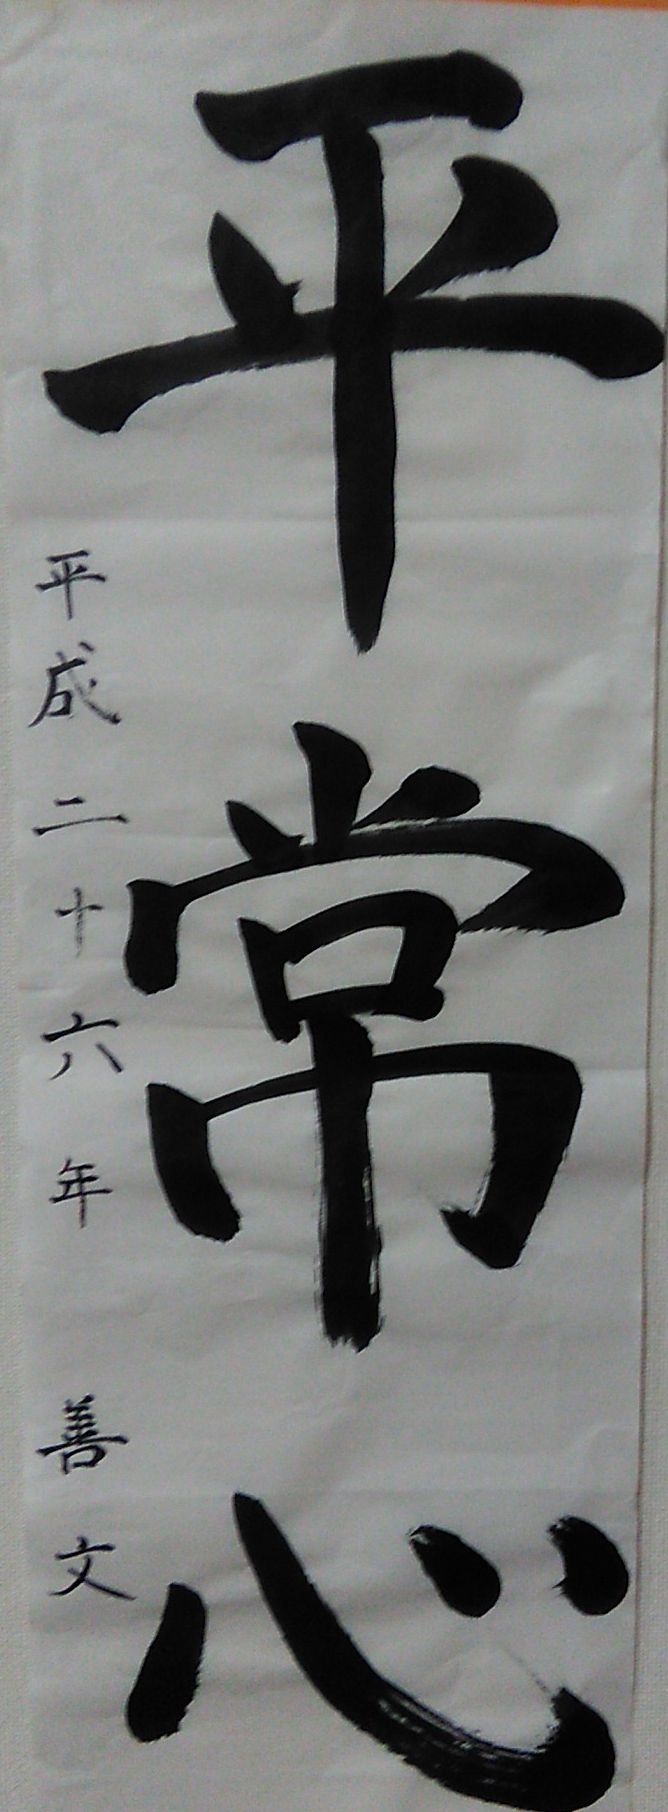 平常心
平成二十六年 善文